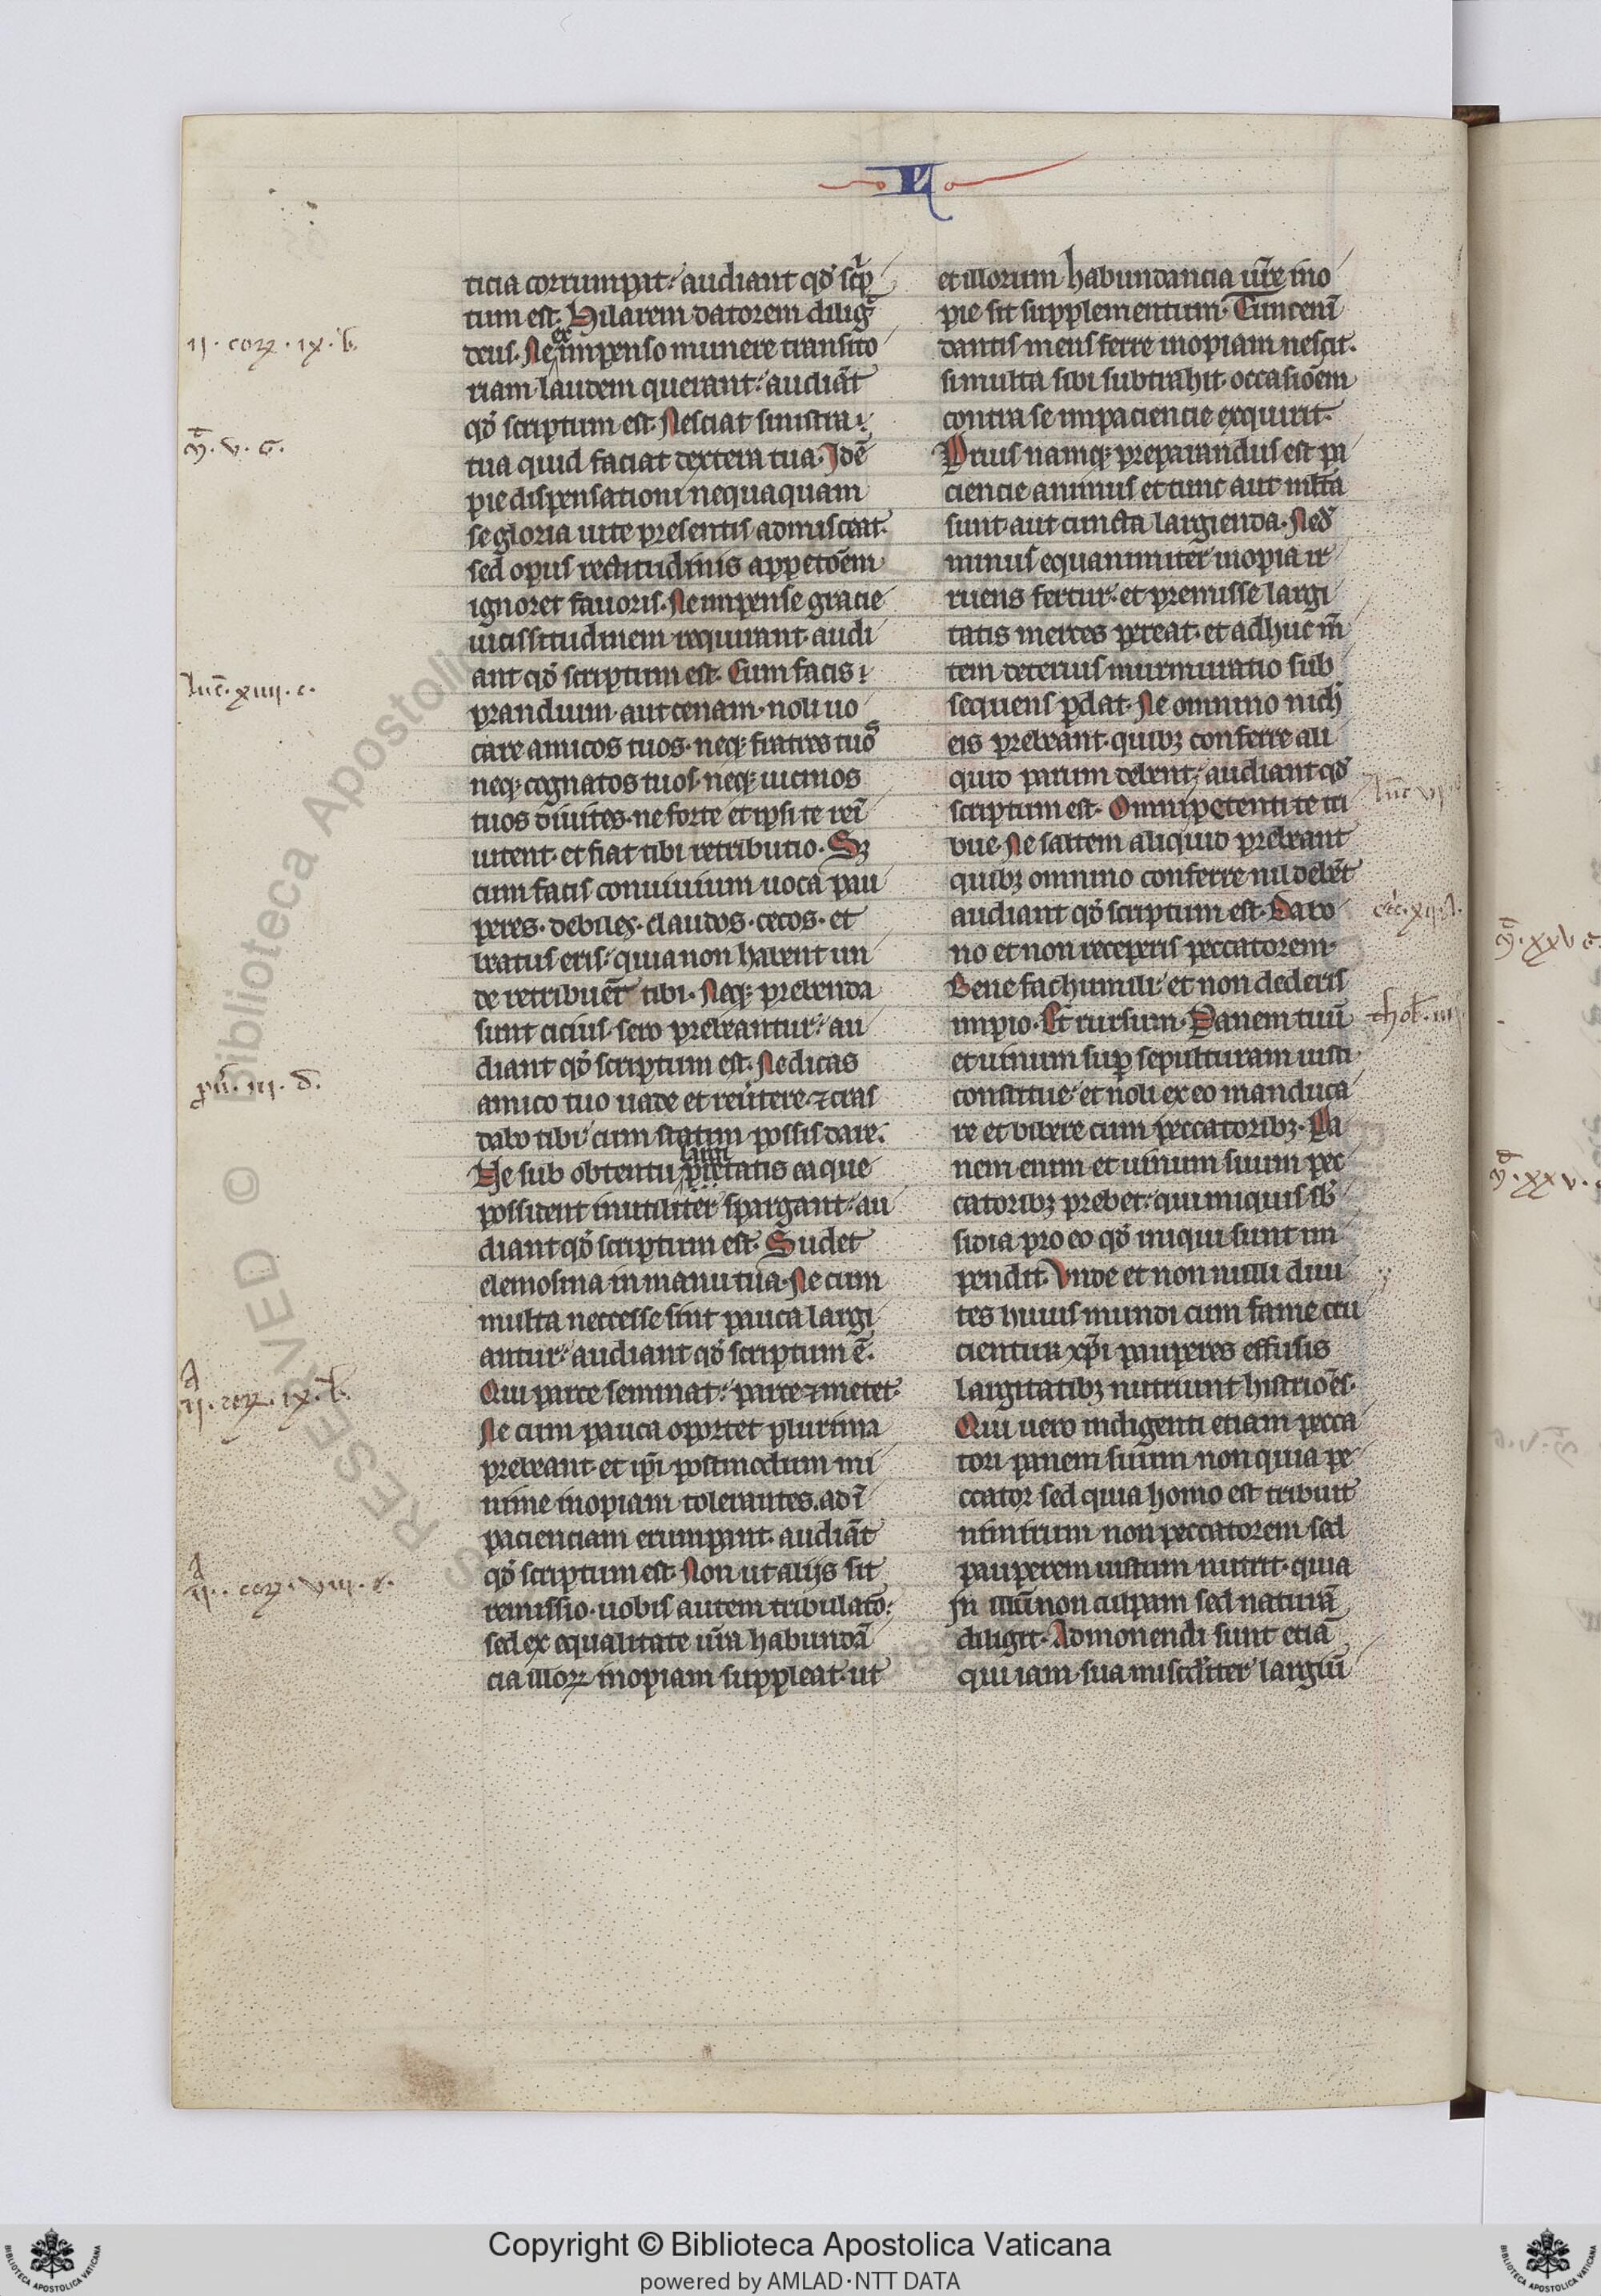 ticia corrumpat: audiant qd̾ sc̾p
tum est. Hilarem datorem dilig̾
deus. Ne ex impenso munere transito
riam laudem querant: audiāt
qd̾ scriptum est. Nesciat sinistra
tua quid faciat dextera tua. Idē
pie dispensationi nequaquam
se gloria uite presentis admisceat.
sed opus rectitudinis appetōem
ignoret fauoris. Ne impense gracie
uicissitudinem requirant. audi
ant qd̾ scriptum est. Cum facis
prandium. aut cenam. noli uo
care amicos tuos. neq; fratres tuos
neq; cognatos tuos. neq; uicinos
tuos diuites. ne forte et ipsi te reī
uitent. et fiat tibi retributio. Sꝫ
cum facis conuiuium uoca pau
peres. debiles. claudos. cecos. et
beatus eris: quia non habent un
de retribuēt tibi. Neq; prebenda
sunt cicius. sero prebeantur: au
diant qd̾ scriptum est. Ne dicas
amico tuo uade et reu̾tere. ⁊ cras
dabo tibi: cum statim possis dare.
Ne sub obtentu largitatis ea que
possident inutiliter spargant: au
diant qd̾ scriptum est. Sudet
elemosina in manu tua. Ne cum
multa neccesse sint pauca largi
antur: audiant qd̾ scriptum ē.
Qui parce seminat: parce ⁊ metet.
Ne cum pauca oportet plurima
prebeant. et ip̄i postmodum mi
nime inopiam tolerantes. ad ī
pacienciam erumpant. audiāt
qd̾ scriptum est. Non ut alijs sit
remissio. uobis autem tribulatō:
sed ex equalitate ur̄a habundā
cia illoꝝ inopiam suppleat. ut
et illorum habundancia ur̄e ino
pie sit supplementum. Cum enī
dantis mens ferre inopiam nescit.
si multa sibi subtrahit. occasiōem
contra se impaciencie exquirit.
Prius namq; preparandus est pa
ciencie animus et tunc aut ml̄ta
sunt aut cuncta largienda. Ne dū
minus equanimiter inopia ir
ruens fertur. et premisse largi
tatis merces pereat. et adhuc mē
tem deterius murmuratio sub
sequens ꝑdat. Ne omnino nich̾
eis prebeant. quibꝫ conferre ali
quid parum debent: audiant qd̾
scriptum est. Omni petenti te tri
bue. Ne saltem aliquid prebeant
quibꝫ omnino conferre nil debēt
audiant qd̾ scriptum est. Da bo
no et non receperis peccatorem.
Bene fac humili: et non dederis
impio. Et rursum. Panem tuū
et uinum suꝑ sepulturam iusti
constitue: et noli ex eo manduca
re et bibere cum peccatoribꝫ. Pa
nem enim et uinum suum pec
catoribꝫ prebet: qui iniquis sb̾
sidia pro eo qd̾ iniqui sunt im
pendit. Vnde et non nulli diui
tes huius mundi cum fame cru
cientur xp̄i pauperes effusis
largitatibꝫ nutriunt histriōes.
Qui uero indigenti etiam pecca
tori panem suum non quia pe
ccator sed quia homo est tribuit
nimirum non peccatorem sed
pauperem iustum nutrit. quia
in illū non culpam sed naturā
diligit. Admonendi sunt etiā
qui iam sua misc̾diter largiū
ij. coꝝ. ix. b.
m̄. v. G.
luc̄. xiiij. c.
ꝓū. iij. d.
A
ij. coꝝ. ix. b.
A
ij. coꝝ. viij. c.
m̄. xxv
m̄. xxv.
Copyright © Biblioteca Apostolica Vaticana
powered by AMLAD·NTT DATA